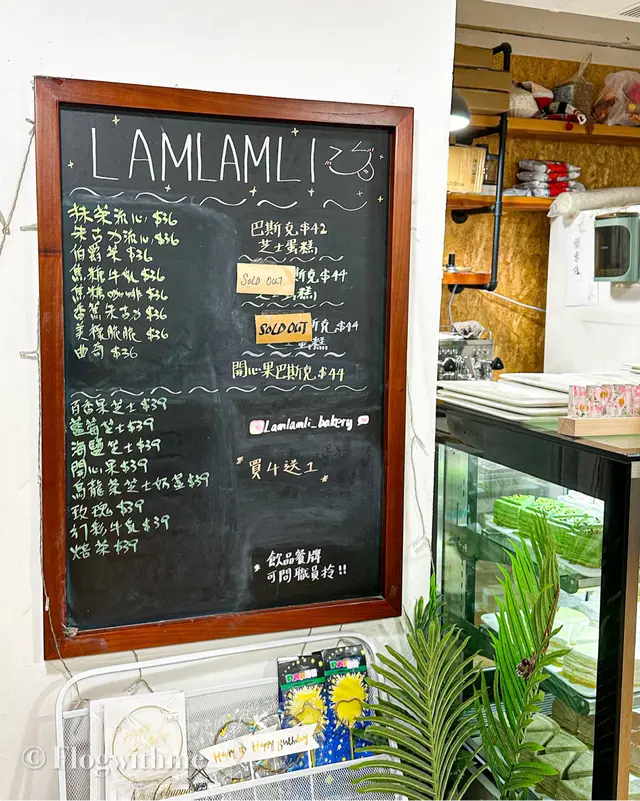 LAMLAMLI
抹茶流心 $36
朱古力流心 $36
伯爵茶 $36
焦糖牛乳 $36
焦糖咖啡 $36
香蕉朱古力 $36
美祿脆脆 $36
曲奇 $36
百香果芝士 $39
藍莓芝士 $39
海鹽芝士 $39
開心果 $39
烏龍茶芝士奶蓋 $39
玫瑰 $39
幻彩牛乳 $39
焙茶 $39
巴斯克 $42
芝士蛋糕
SOLD OUT
斯克 $44
SOLD OUT
斯克 $44
蛋糕
開心果巴斯克 $44
Lamlamli_bakery
買4送1
* 飲品餐牌
可問職員拎!!
Happy Birthday
© Flogwithme